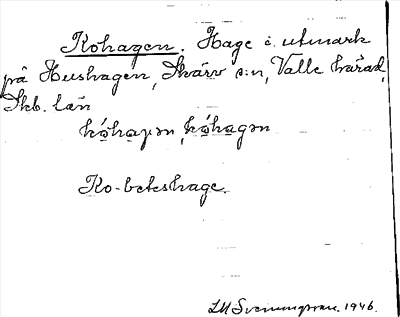 Kohagen. Hage i utmark
på Hushagen, Skärv s:n, Valle härad,
Skb. län
kóhaɡən, kóhagən
Ko-beteshage.
LM Svenungsson. 1946.